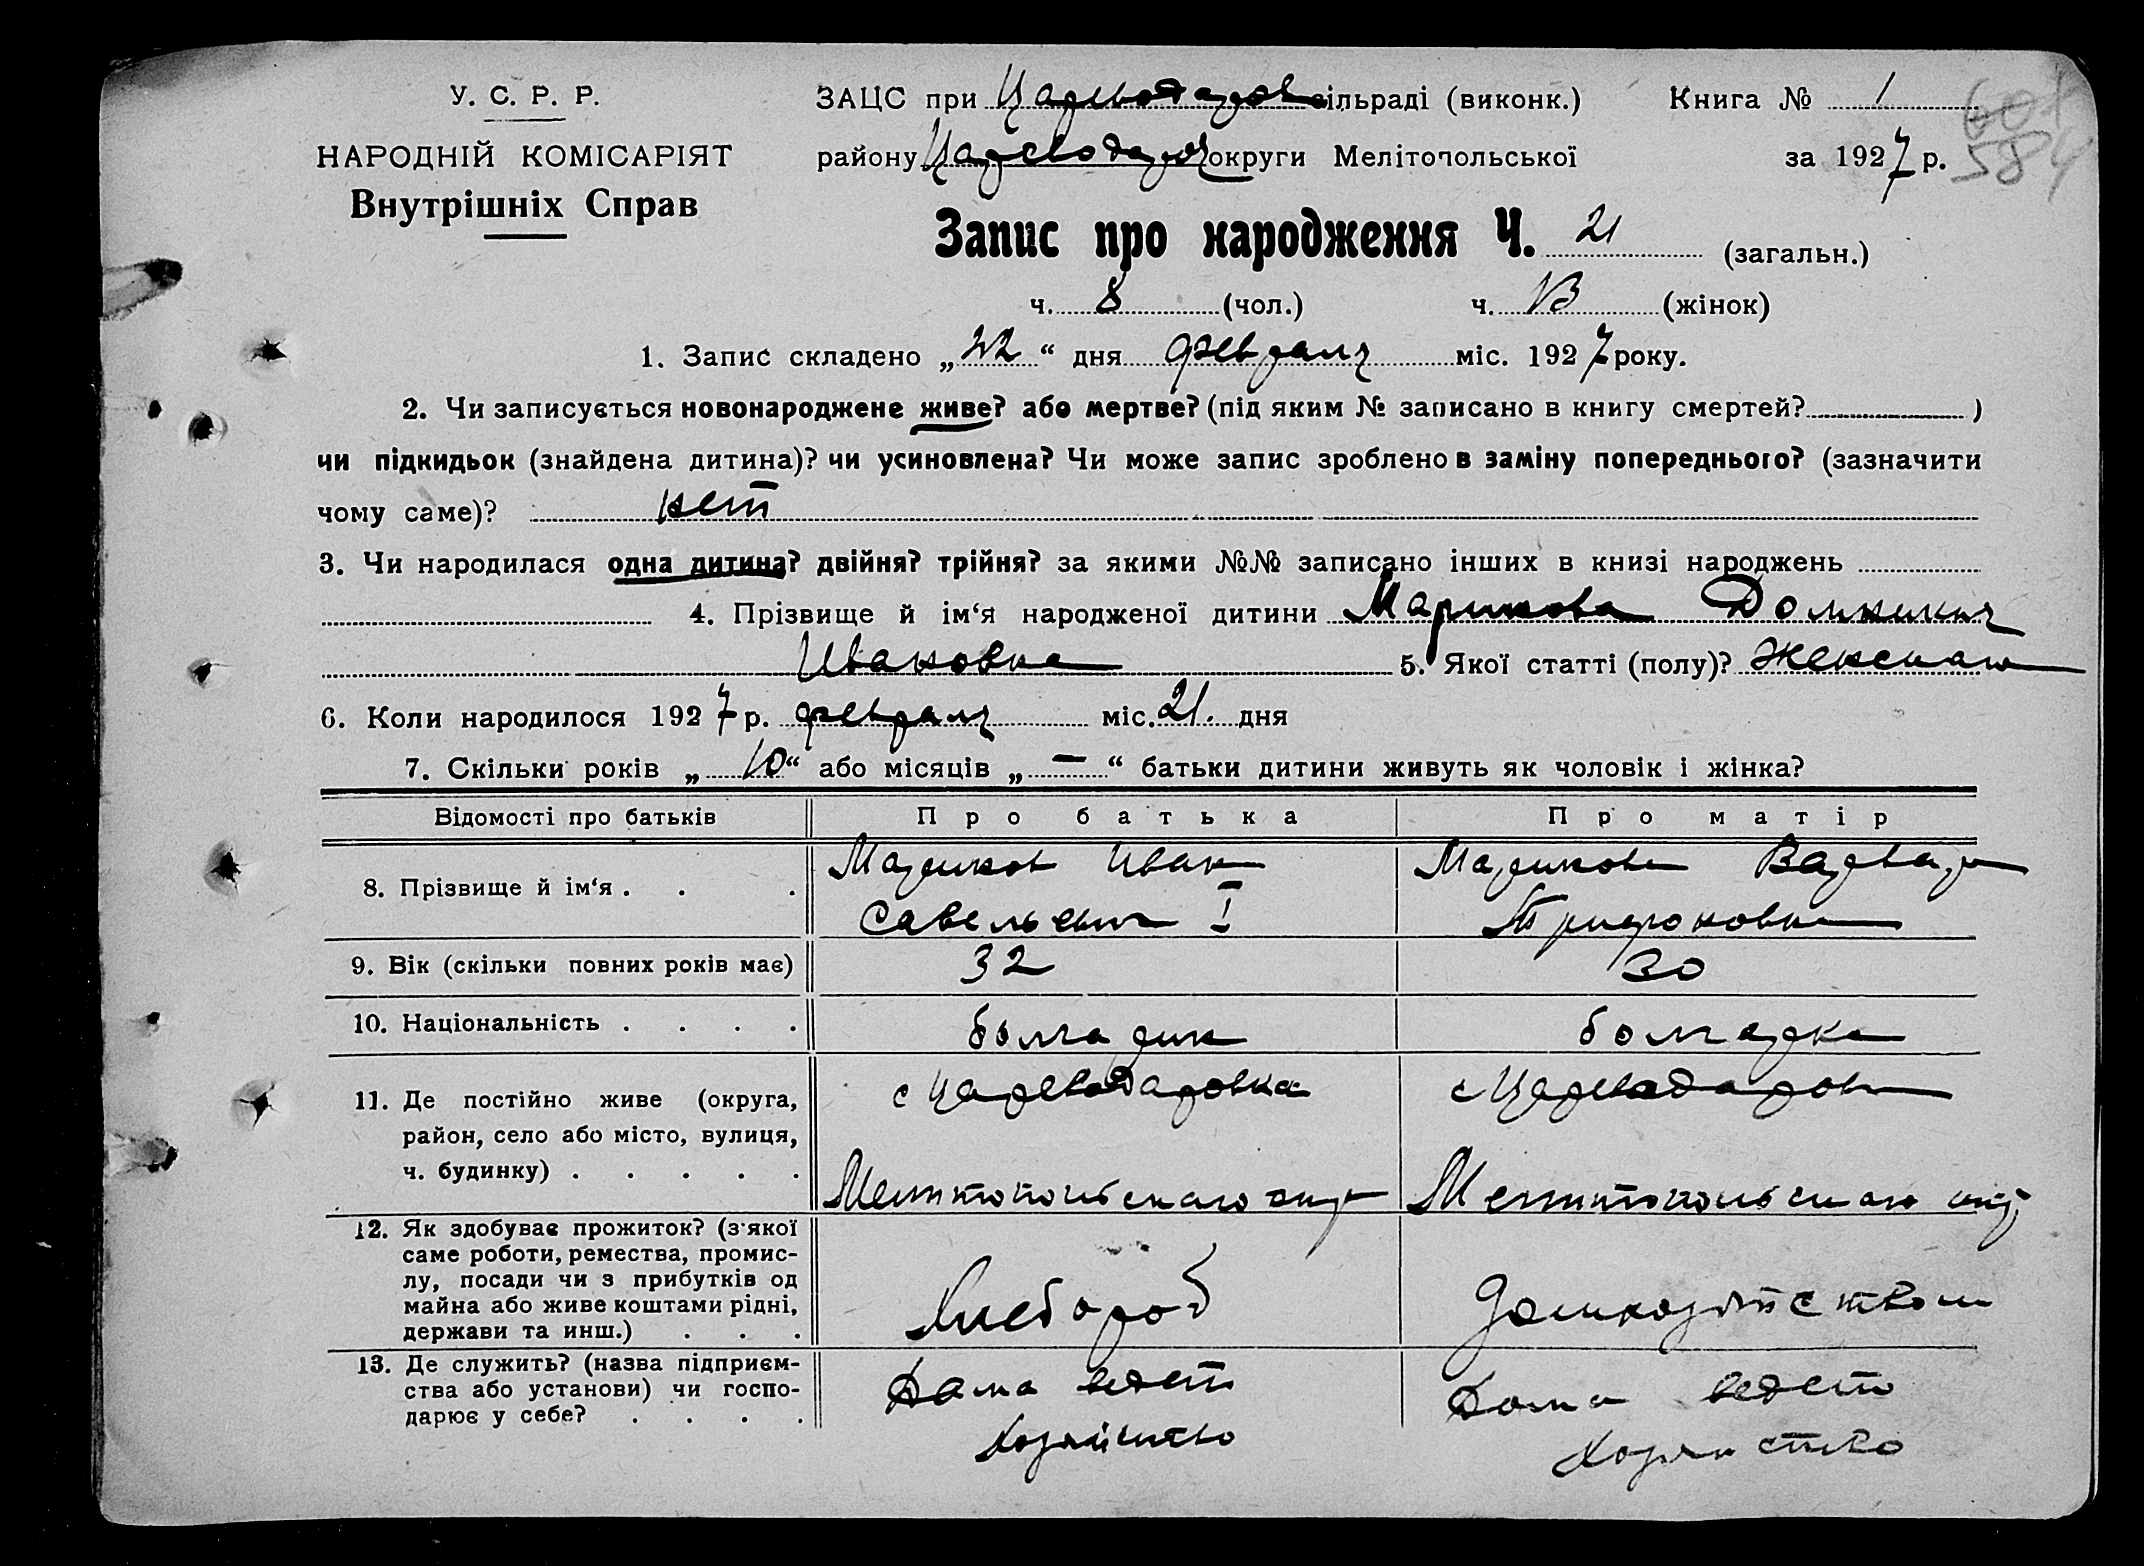 У. С. Р. Р.
НАРОДНІЙ КОМІСАРІЯТ
Внутрішніх Справ
ЗАЦС при Цареводаров сільраді (виконк.)
Книга № 1
району Цареводар округи Мелітопольської
за 1927 р.
601
584
Запис про народження Ч. 21 (загальн.)
ч. 8 (чол.) ч. 13 (жінок)
1. Запис складено „22“ дня февраля міс. 1927 року.
2. Чи записується новонароджене живе? або мертве? (під яким № записано в книгу смертей? )
чи підкидьок (знайдена дитина)? чи усиновлена? Чи може запис зроблено в заміну попереднього? (зазначити
чому саме)? нет
3. Чи народилася одна дитина? двійня? трійня? за якими №№ записано інших в книзі народжень
4. Прізвище й ім‘я народженої дитини Маринова Домникия
Ивановна 5. Якої статті (полу)? женскаго
6. Коли народилося 1927 р. февраля міс. 21. дня
7. Скільки років „10“ або місяців „—“ батьки дитини живуть як чоловік і жінка?
Відомості про батьків Про батька Про матір
8. Прізвище й ім‘я . . . Маринов Иван Маринова Варвара
Савельевич I Трифоновна
9. Вік (скільки повних років має) 32 30
10. Національність . . . . болгарин болгарка
11. Де постійно живе (округа, с Цареводаровка с Цареводаровка
район, село або місто, вулиця,
ч. будинку) . . . . . Мелитопольскаго окру Мелитопольскаго окр
12. Як здобуває прожиток? (з якої
саме роботи, ремества, промис-
лу, посади чи з прибутків од
майна або живе коштами рідні, Хлебороб Домхозяйством
держави та инш.) . . .
13. Де служить? (назва підприєм-
ства або установи) чи госпо- Дома ведет Дома ведет
дарює у себе? . . . . хозяйство хозяйство